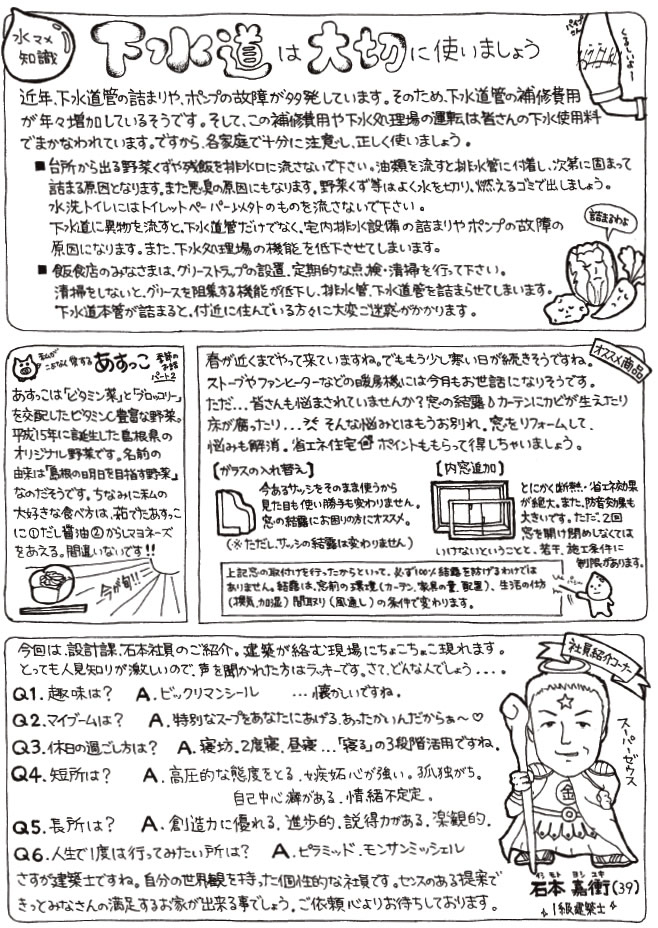 水マメ
知識
下水道は大切に使いましょう
近年、下水道管の詰まりや、ポンプの故障が多発しています。そのため、下水道管の補修費用
が年々増加しているそうです。そして、この補修費用や下水処理場の運転は皆さんの下水使用料
でまかなわれています。ですから、各家庭で十分に注意し、正しく使いましょう。
■台所から出る野菜くずや残飯を排水口に流さないで下さい。油類を流すと排水管に付着し、次第に固まって
詰まる原因となります。また悪臭の原因にもなります。野菜くず等はよく水を切り、燃えるゴミで出しましょう。
水洗トイレにはトイレットペーパー以外のものを流さないで下さい。
下水道に異物を流すと、下水道管だけでなく、宅内排水設備の詰まりやポンプの故障の
原因になります。また、下水処理場の機能を低下させてしまいます。
■飲食店のみなさまは、グリーストラップの設置、定期的な点検・清掃を行って下さい。
清掃をしないと、グリースを阻集する機能が低下し、排水管、下水道管を詰まらせてしまいます。
下水道本管が詰まると、付近に住んでいる方々に大変ご迷惑がかかります。
詰まるわよ
私が
こよなく愛するあすっこ
パート2
あすっこは「ビタミン菜」と「ブロッコリー」
を交配したビタミンC豊富な野菜。
平成15年に誕生した島根県の
オリジナル野菜です。名前の
由来は「島根の明日を目指す野菜」
なのだそうです。ちなみに私の
大好きな食べ方は、茹でたあすっこ
に①だし醤油②からしマヨネーズ
をあえる。間違いないです!!
今が旬!!
オススメ商品
春が近くまでやって来ていますね。でももう少し寒い日が続きそうですね。
ストーブやファンヒーターなどの暖房機には今月もお世話になりそうです。
ただ…皆さんも悩まされていませんか?窓の結露&カーテンにカビが生えたり
床が腐ったり…そんな悩みとはもうお別れ。窓をリフォームして、
悩みも解消。省エネ住宅ポイントももらって得しちゃいましょう。
【ガラスの入れ替え】
今あるサッシをそのまま使うから
見た目も使い勝手も変わりません。
窓の結露にお困りの方にオススメ。
(※ただし、サッシの結露は変わりません)
【内窓追加】
とにかく断熱・省エネ効果
が絶大。また、防音効果も
大きいです。ただ、2回
窓を開け閉めしなくては
いけないということと、若干、施工条件に
制限があります。
上記窓の取付けを行ったからといって、必ず100%結露を防げるわけでは
ありません。結露は、窓前の環境(カーテン、家具の量、配置)、生活の仕方
(換気、加湿)間取り(風通し)の条件で変わります。
社員紹介コーナー
今回は、設計課、石本社員のご紹介。建築が絡む現場にちょこちょこ現れます。
とっても人見知りが激しいので、声を聞かれた方はラッキーです。さて、どんな人でしょう....
Q1. 趣味は? A. ビックリマンシール …懐かしいですね。
Q2. マイブームは? A. 特別なスープをあなたにあげる、あったかいんだからぁ〜♡
Q3. 休日の過ごし方は? A. 寝坊、2度寝、昼寝…「寝る」の3段階活用ですね。
Q4. 短所は? A. 高圧的な態度をとる、嫉妬心が強い。孤独がち。
自己中心癖がある、情緒不定定。
Q5. 長所は? A. 創造力に優れる、進歩的、説得力がある、楽観的。
Q6. 人生で1度は行ってみたい所は? A. ピラミッド、モンサンミッシェル
さすが建築士ですね。自分の世界観を持った個性的な社員です。センスのある提案で
きっとみなさんの満足するお家が出来る事でしょう。ご依頼心よりお待ちしております。
スーパーゼウス
金
イシモト ヨシユキ
石本 嘉衝(39)
1級建築士